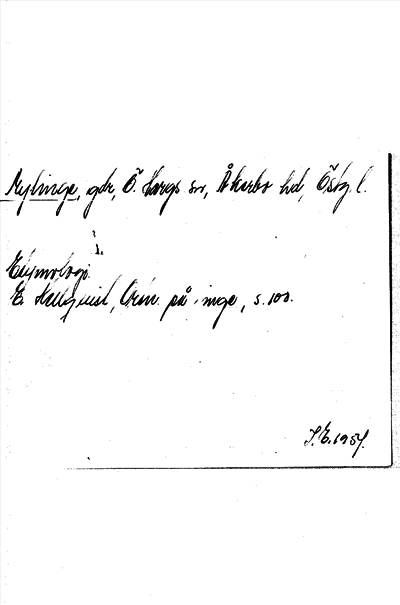 Mylinge, gdr, Ö. Hargs sn, Åkerbo hd, Östg. l.
Etymologi.
E. Hellquist, Ortn. på -inge, s. 100.
I.E. 1957.